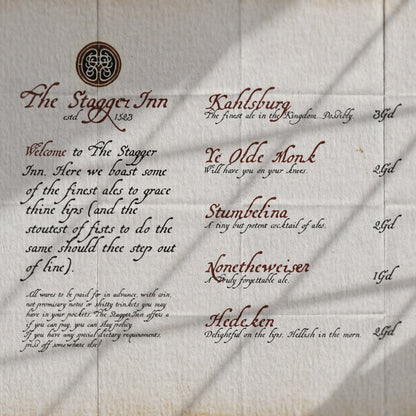 The Stagger Inn
estd 1583
Welcome to The Stagger
Inn. Here we boast some
of the finest ales to grace
thine lips (and the
stoutest of fists to do the
same should thee step out
of line).
All wares to be paid for in advance, with coin,
not promisary notes or shitty trinkets you may
have in your pockets. The Stagger Inn offers a
if you can pay, you can stay policy.
If you have any special dietary requirements,
piss off somewhere else!
Kahlsburg
The finest ale in the Kingdom...Possibly. 3Gd
Ye Olde Monk
Will have you on your knees. 2Gd
Stumbelina
A tiny but potent cocktail of ales. 2Gd
Nonetheweiser
A truly forgettable ale. 1Gd
Hedeken
Delightful on the lips, Hellish in the morn. 2Gd